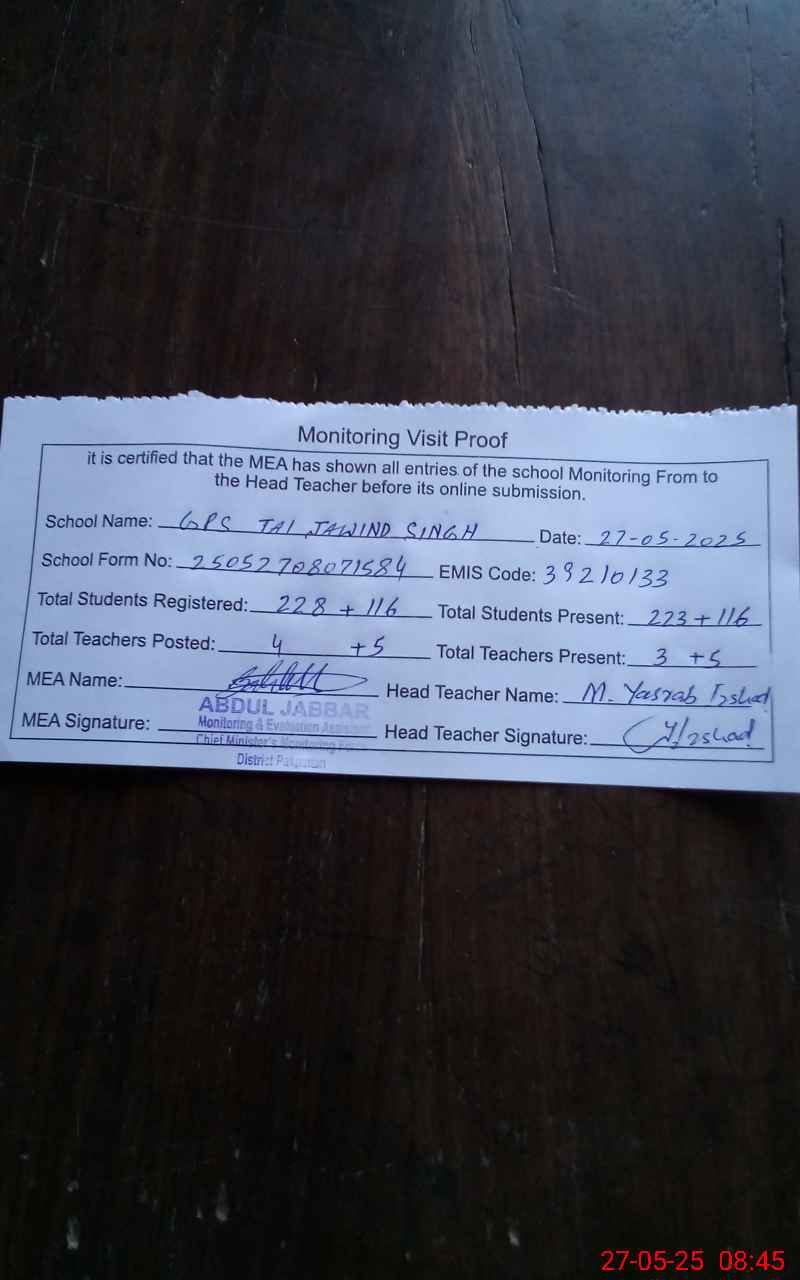 Monitoring Visit Proof
it is certified that the MEA has shown all entries of the school Monitoring From to
the Head Teacher before its online submission.
School Name: GPS TAI JAWIND SINGH Date: 27-05-2025
School Form No: 25052708071584 EMIS Code: 39210133
Total Students Registered: 228 + 116 Total Students Present: 223 + 116
Total Teachers Posted: 4 +5 Total Teachers Present: 3 +5
MEA Name: Head Teacher Name: M. Yasrab Irshad
ABDUL JABBAR
Monitoring & Evaluation Assistant
MEA Signature: Head Teacher Signature: Y/Irshad
Chief Minister's Monitoring Force
District Pakpattan
27-05-25 08:45